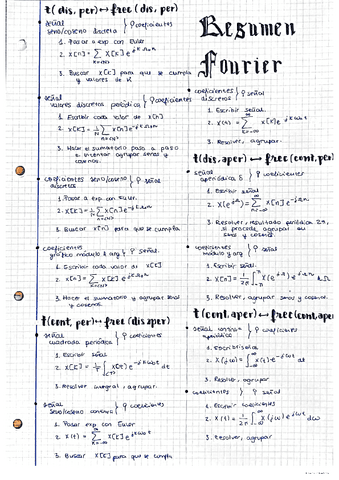 t(dis, per) ↔ frec (dis, per)
señal
seno/coseno discreta } ? coeficientes
1. Pasar a exp con Euler
2. x[n] = Σ X[k] e^jkΩ₀n
3. Buscar X[k] para que se cumpla
y valores de k
señal
valores discretos periódica } ? coeficientes
1. Escribir cada valor de x[n]
2. X[k] = 1/N Σ x[n] e^-jkΩ₀n
3. Hacer el sumatorio paso a paso
e intentar agrupar senos y
cosenos.
coeficientes seno/coseno
discretos } ? señal
1. Pasar a exp con Euler.
2. X[k] = 1/N Σ x[n] e^-jkΩ₀n
3. Buscar x[n] para que se cumpla
coeficientes
gráfico módulo y arg } ? señal.
1. Escribir cada valor de X[k]
2. x[n] = Σ X[k] e^jkΩ₀n
3. Hacer el sumatorio y agrupar senos
y cosenos.
t(cont, per) ↔ frec (dis, aper)
señal
cuadrada periódica } ? coeficientes
1. Escribir señal
2. X[k] = 1/T ∫ x(t) e^-jkω₀t dt
3. Resolver integral, agrupar.
señal
seno/coseno continua } ? coeficientes
1. Pasar exp con Euler
2. x(t) = Σ X[k] e^jkω₀t
3. Buscar X[k] para que se cumpla
Resumen
Fourier
coeficientes
discretos } ? señal
1. Escribir señal.
2. x(t) = Σ X[k] e^jkω₀t
3. Resolver, agrupar.
t(dis, aper) ↔ frec (cont, per)
señal
aperiódica } ? coeficientes
1. Escribir señal
2. X(e^jΩ) = Σ x[n] e^-jΩn
3. Resolver, resultado periódica 2π,
si procede agrupar en
senos y cosenos.
coeficientes
módulo y arg } ? señal
1. Escribir señal.
2. x[n] = 1/2π ∫ X(e^jΩ) e^jΩn dΩ
3. Resolver, agrupar senos y cosenos.
t(cont, aper) ↔ frec (cont, aper)
señal continua
aperiódica } ? coeficientes
1. Escribir señal
2. X(jω) = ∫ x(t) e^-jωt dt
3. Resolver, agrupar
coeficientes } ? señal
1. Escribir coeficientes
2. x(t) = 1/2π ∫ X(jω) e^jωt dω
3. resolver, agrupar